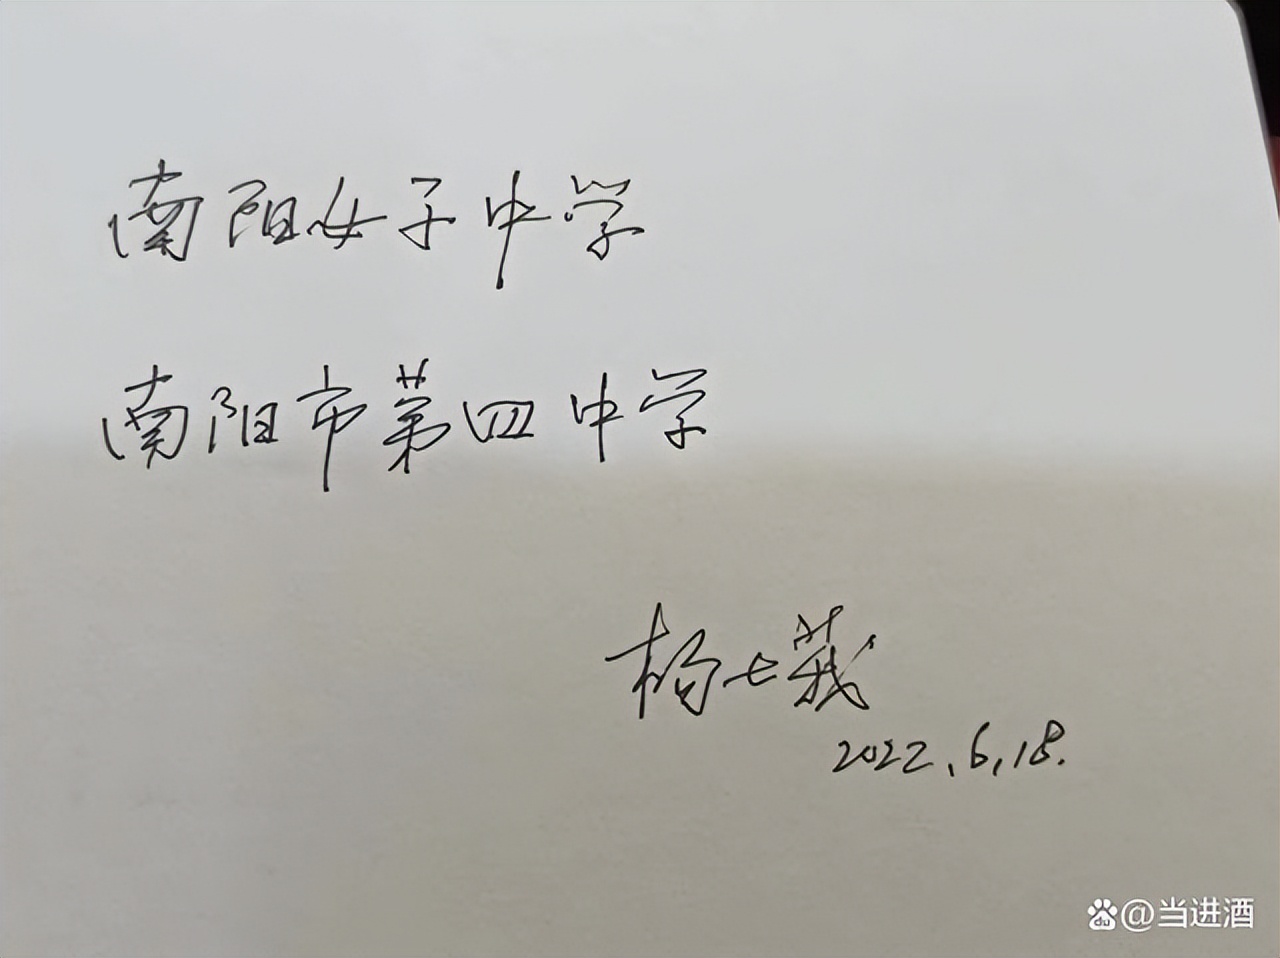 南阳女子中学
南阳市第四中学
杨七莪
2022.6.18.
@当进酒